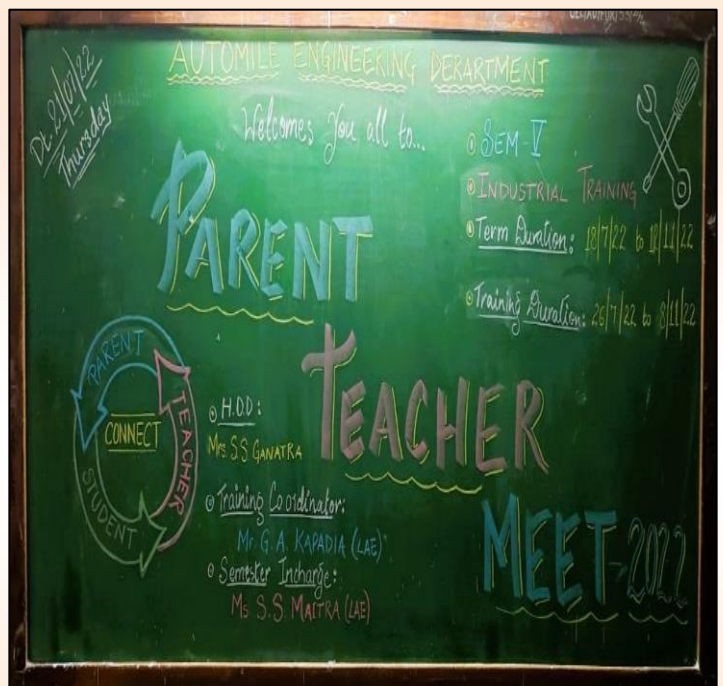 Dt. 21/07/22
Thursday
AUTOMILE ENGINEERING DERARTMENT
Welcomes You all to...
PARENT
TEACHER
MEET-2022
SEM-V
INDUSTRIAL TRAINING
Term Duration: 18/7/22 to 12/11/22
Training Duration: 26/7/22 to 8/11/22
PARENT
TEACHER
STUDENT
CONNECT
H.O.D:
Mrs. S S GANATRA
Training Coordinator:
Mr. G. A. KAPADIA (LAE)
Semester Incharge:
Ms S. S. MAITRA (LAE)